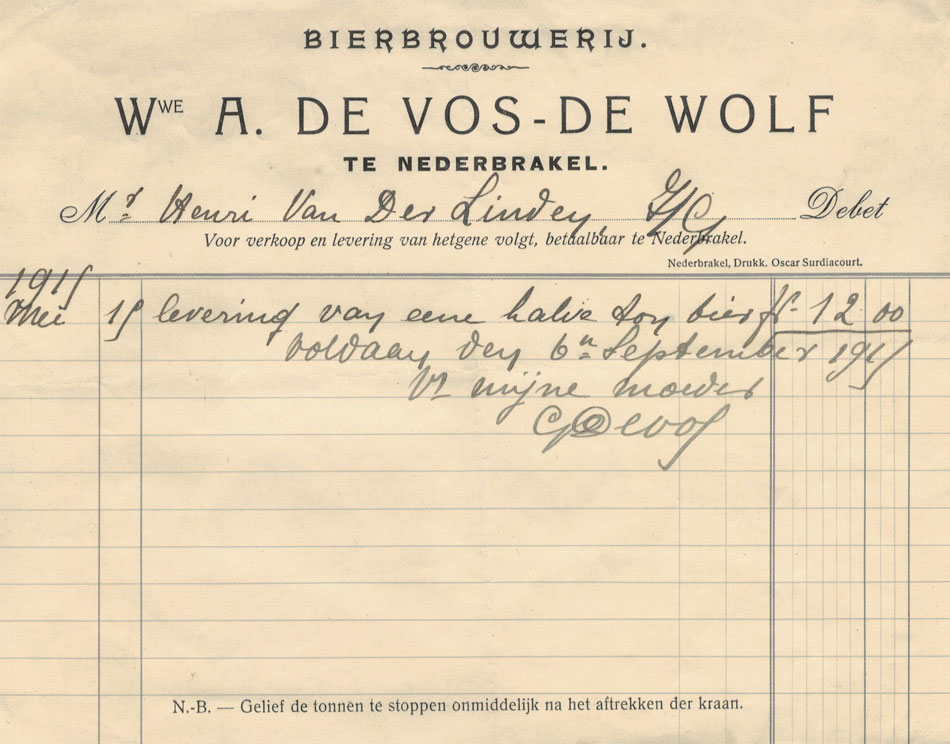 BIERBROUWERIJ.
Wwe A. DE VOS-DE WOLF
TE NEDERBRAKEL.
Mr Henri Van Der Linden, Debet
Voor verkoop en levering van hetgene volgt, betaalbaar te Nederbrakel.
Nederbrakel, Drukk. Oscar Surdiacourt.
1915
Mei 15 levering van eene halve ton bier fr 12 00
Voldaan den 6n September 1915
Vr mijne moeder
G Devos
N.-B. — Gelief de tonnen te stoppen onmiddelijk na het aftrekken der kraan.